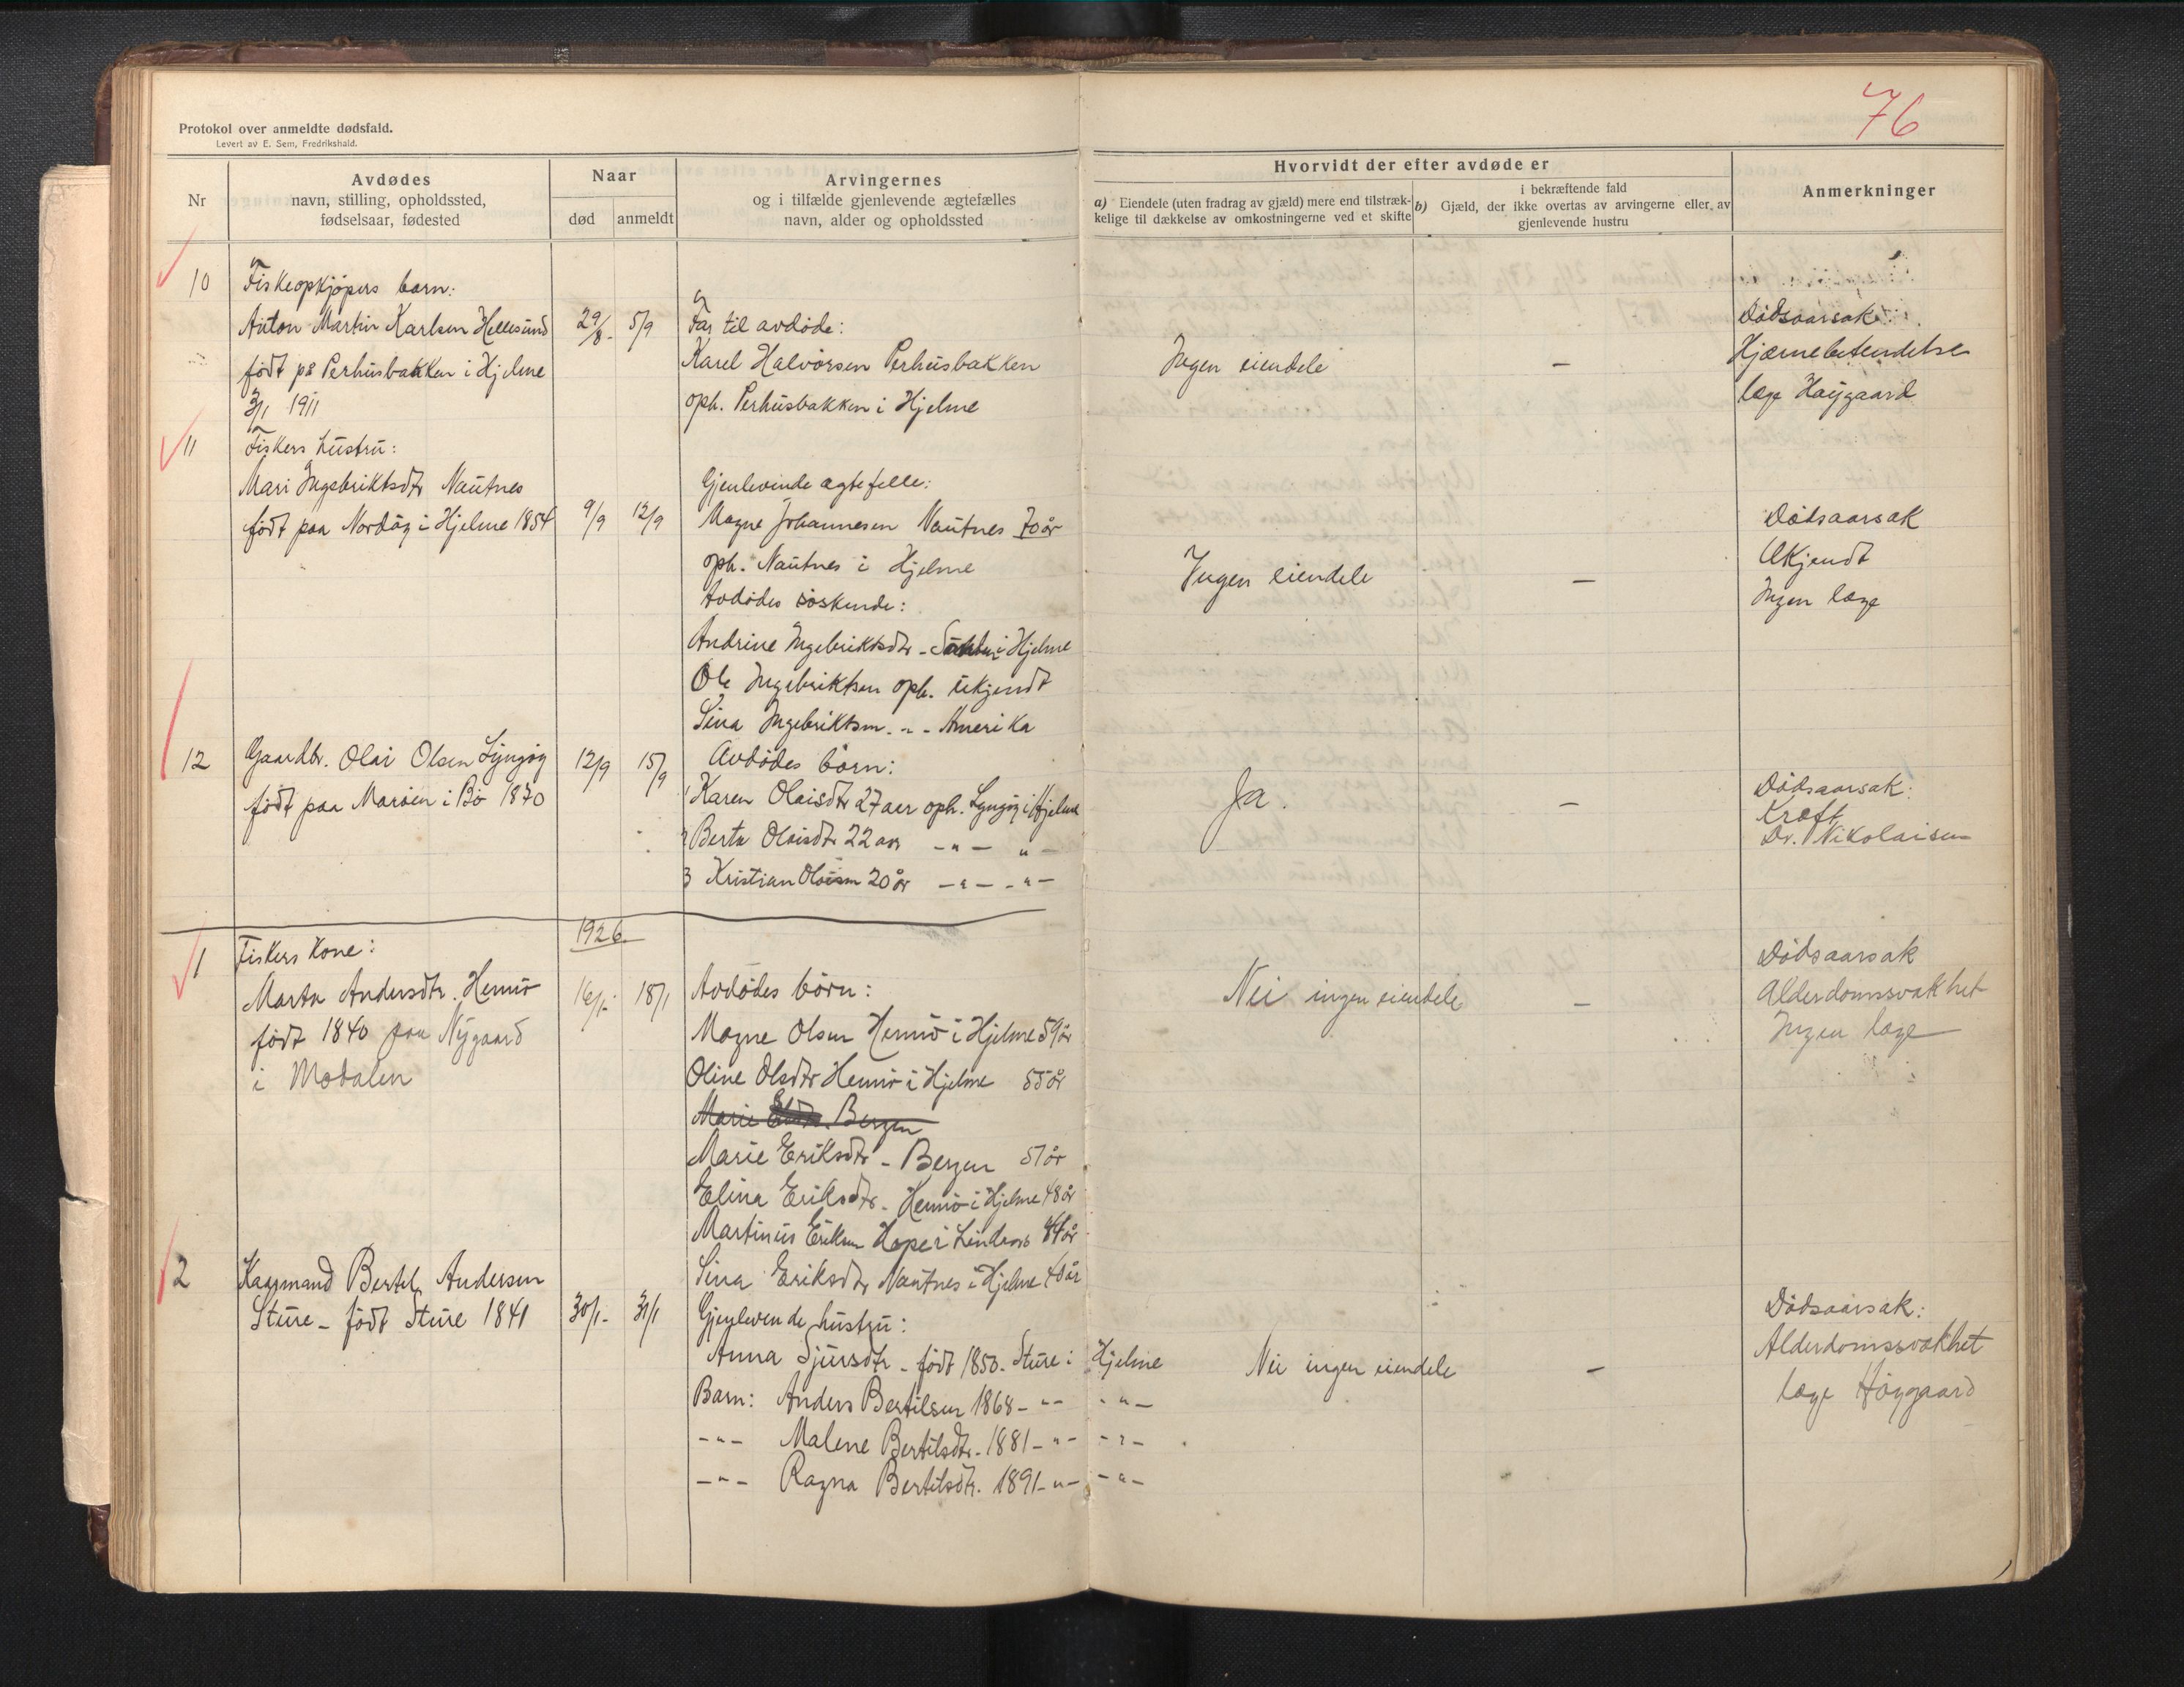 76
Protokol over anmeldte dødsfald.
Levert av E. Sem, Fredrikshald.
Nr
Avdødes
navn, stilling, opholdssted,
fødselsaar, fødested
Naar
død
anmeldt
Arvingernes
og i tilfælde gjenlevende ægtefælles
navn, alder og opholdssted
Hvorvidt der efter avdøde er
a) Eiendele (uten fradrag av gjæld) mere end tilstræk-
kelige til dækkelse av omkostningerne ved et skifte
i bekræftende fald
b) Gjæld, der ikke overtas av arvingerne eller av
gjenlevende hustru
Anmerkninger
10
Fiskeopkjøpers barn:
Anton Martin Karlsen Hellesund
født på Perhusbakken i Hjelme
3/1 1911
29/8-
5/9
Far til avdøde:
Karel Halvorsen Perhusbakken
oph. Perhusbakken i Hjelme
Ingen eiendele
-
Dødsaarsak:
Hjernebetendelse
læge Høygaard
11
Fiskers hustru:
Mari Ingebriktsdtr Nautnes
født paa Nordøy i Hjelme 1854
9/9
12/9
Gjenlevende ægtefelle:
Magne Johannesen Nautnes 70 år
oph. Nautnes i Hjelme
Avdødes søskende:
Andrine Ingebriktsdtr - i Hjelme
Ole Ingebriktsen oph. ukjendt
Sina Ingebriktsen - " - Amerika
Ingen eiendele
-
Dødsaarsak
Ukjendt
Ingen læge
12
Gaardbr. Olai Olsen Lyngøy
født paa Marøen i Bø 1870
12/9
15/9
Avdødes børn:
1 Karen Olaisdtr 27 aar oph. Lyngøy i Hjelme
2 Berta Olaisdtr 22 aar - " - " -
3 Kristian Olaisen 20 år - " - - " -
Ja.
-
Dødsaarsak:
Kræft
Dr. Nikolaisen
1926.
1
Fiskers kone:
Marta Andersdtr. Hernø
født 1840 paa Nygaard
i Modalen
16/1-
18/1
Avdødes børn:
Magne Olsen Hernø i Hjelme 59 år
Oline Olsdtr Hernø i Hjelme 55 år
Marie Bergen
Marie Eriksdtr - Bergen 51 år
Elina Eriksdtr. Hernø i Hjelme 48 år
Martinus Eriksen Hope i Lindaas 44 år
Sina Eriksdtr Nautnes i Hjelme 40 år
Nei ingen eiendele
-
Dødsaarsak
Alderdomssvakhet
Ingen læge
2
Kaarmand Bertel Andersen
Sture - født Sture 1841
30/1-
31/1
Gjenlevende hustru:
Anna Sjursdtr - født 1850 - Sture i Hjelme
Barn: Anders Bertilsen 1868 - " - - " -
- " - Malene Bertilsdtr - 1881 - " - - " -
- " - Ragna Bertilsdtr. 1891 - " - - " -
Nei ingen eiendele
-
Dødsaarsak:
Alderdomssvakhet
læge Høygaard